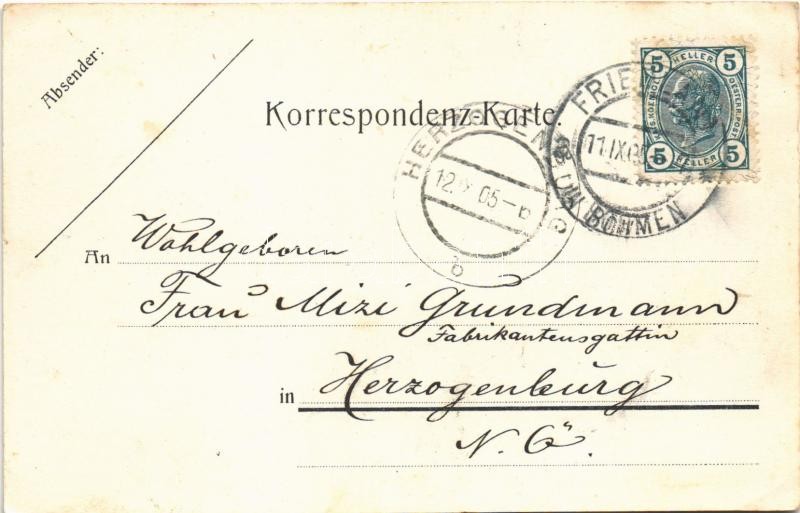 Absender:
Korrespondenz-Karte.
5 HELLER 5
KAIS. KOENIGL. OESTERR. POST
5 HELLER 5
FRIED
11 IX 05
IN BÖHMEN
HERZOGENBURG
12 IX 05-6
b
An Wohlgeboren
Frau Mizi Grundmann
Fabrikantensgattin
in Herzogenburg
N. Ö.